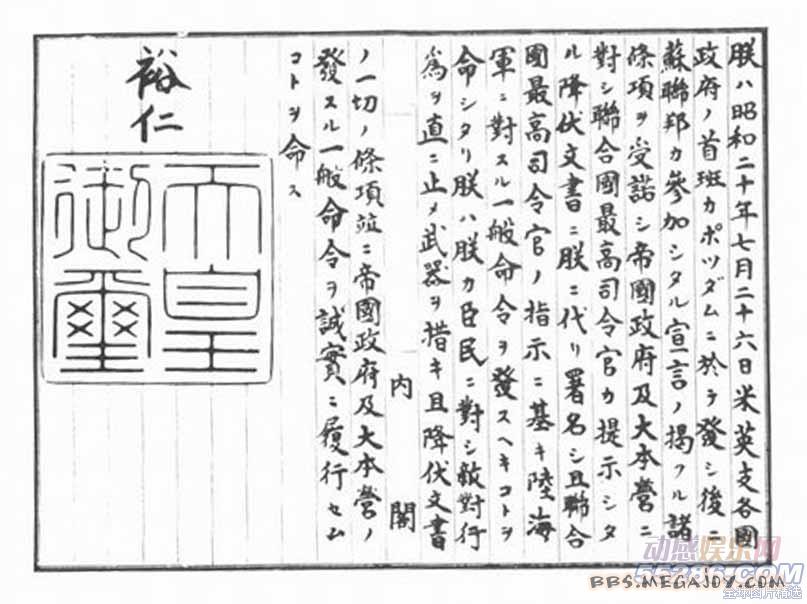 朕ハ昭和二十年七月二十六日米英支各國
政府ノ首班カポツダムニ於テ發シ後ニ
蘇聯邦カ參加シタル宣言ノ掲クル諸
條項ヲ受諾シ帝國政府及大本營ニ
對シ聯合國最高司令官カ提示シタ
ル降伏文書ニ朕ニ代リ署名シ且聯合
國最高司令官ノ指示ニ基キ陸海
軍ニ對スル一般命令ヲ發スヘキコトヲ
命シタリ朕ハ朕カ臣民ニ對シ敵對行
爲ヲ直ニ止メ武器ヲ措キ且降伏文書
内閣
ノ一切ノ條項竝ニ帝國政府及大本營ノ
發スル一般命令ヲ誠實ニ履行セム
コトヲ命ス
裕仁
天皇
御璽
动感娱乐网
55286.COM
BBS.MEGAJOY.COM
全球图片精选